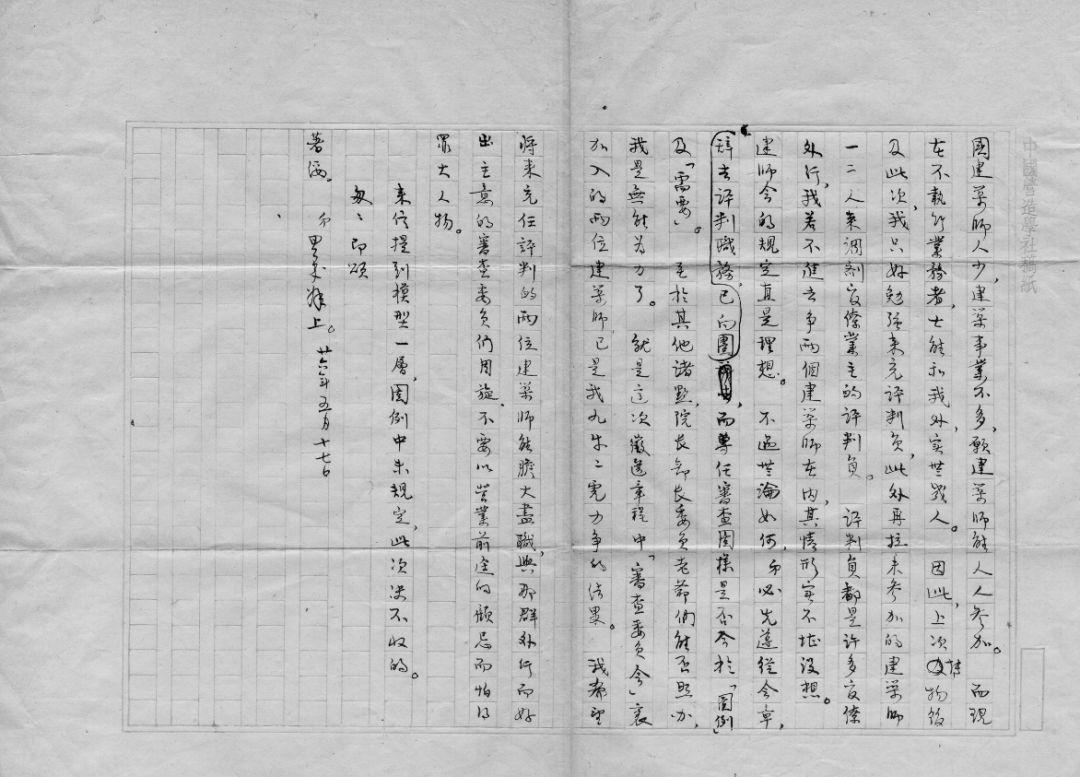 中國營造學社稿紙
國建築師人少，建築事業不多，願建築師能人人參加。而現
在不執行業務者，士能和我外，實無幾人。因此，上次博物館
及此次，我只好勉强來充評判員，此外再拉未參加的建築師
一二人來調劑官僚業主的評判員。評判員都是許多官僚
外行，我若不進去爭兩個建築師在内，其情形實不堪設想。
建師會的規定真是理想。不過無論如何，弟必先遵從會章，
辞去評判職務，已向圖 而專任審查圖樣是否合於「圖例」
及「需要」。至於其他諸點，院長部長委員老爺們能否照办，
我是無能为力了。就是這次徵選章程中「審查委員会」裏
加入的兩位建築師，已是我九牛二虎力争的结果。我希望
將来充任評判的兩位建築師能膽大盡職，與那群外行而好
出主意的審查委員们周旋，不要以营業前途的顧忌而怕得
罪大人物。
来信提到模型一層，圖例中未規定，此次決不收的。
匆匆即頌
著安。
弟 上。廿六年五月十七日